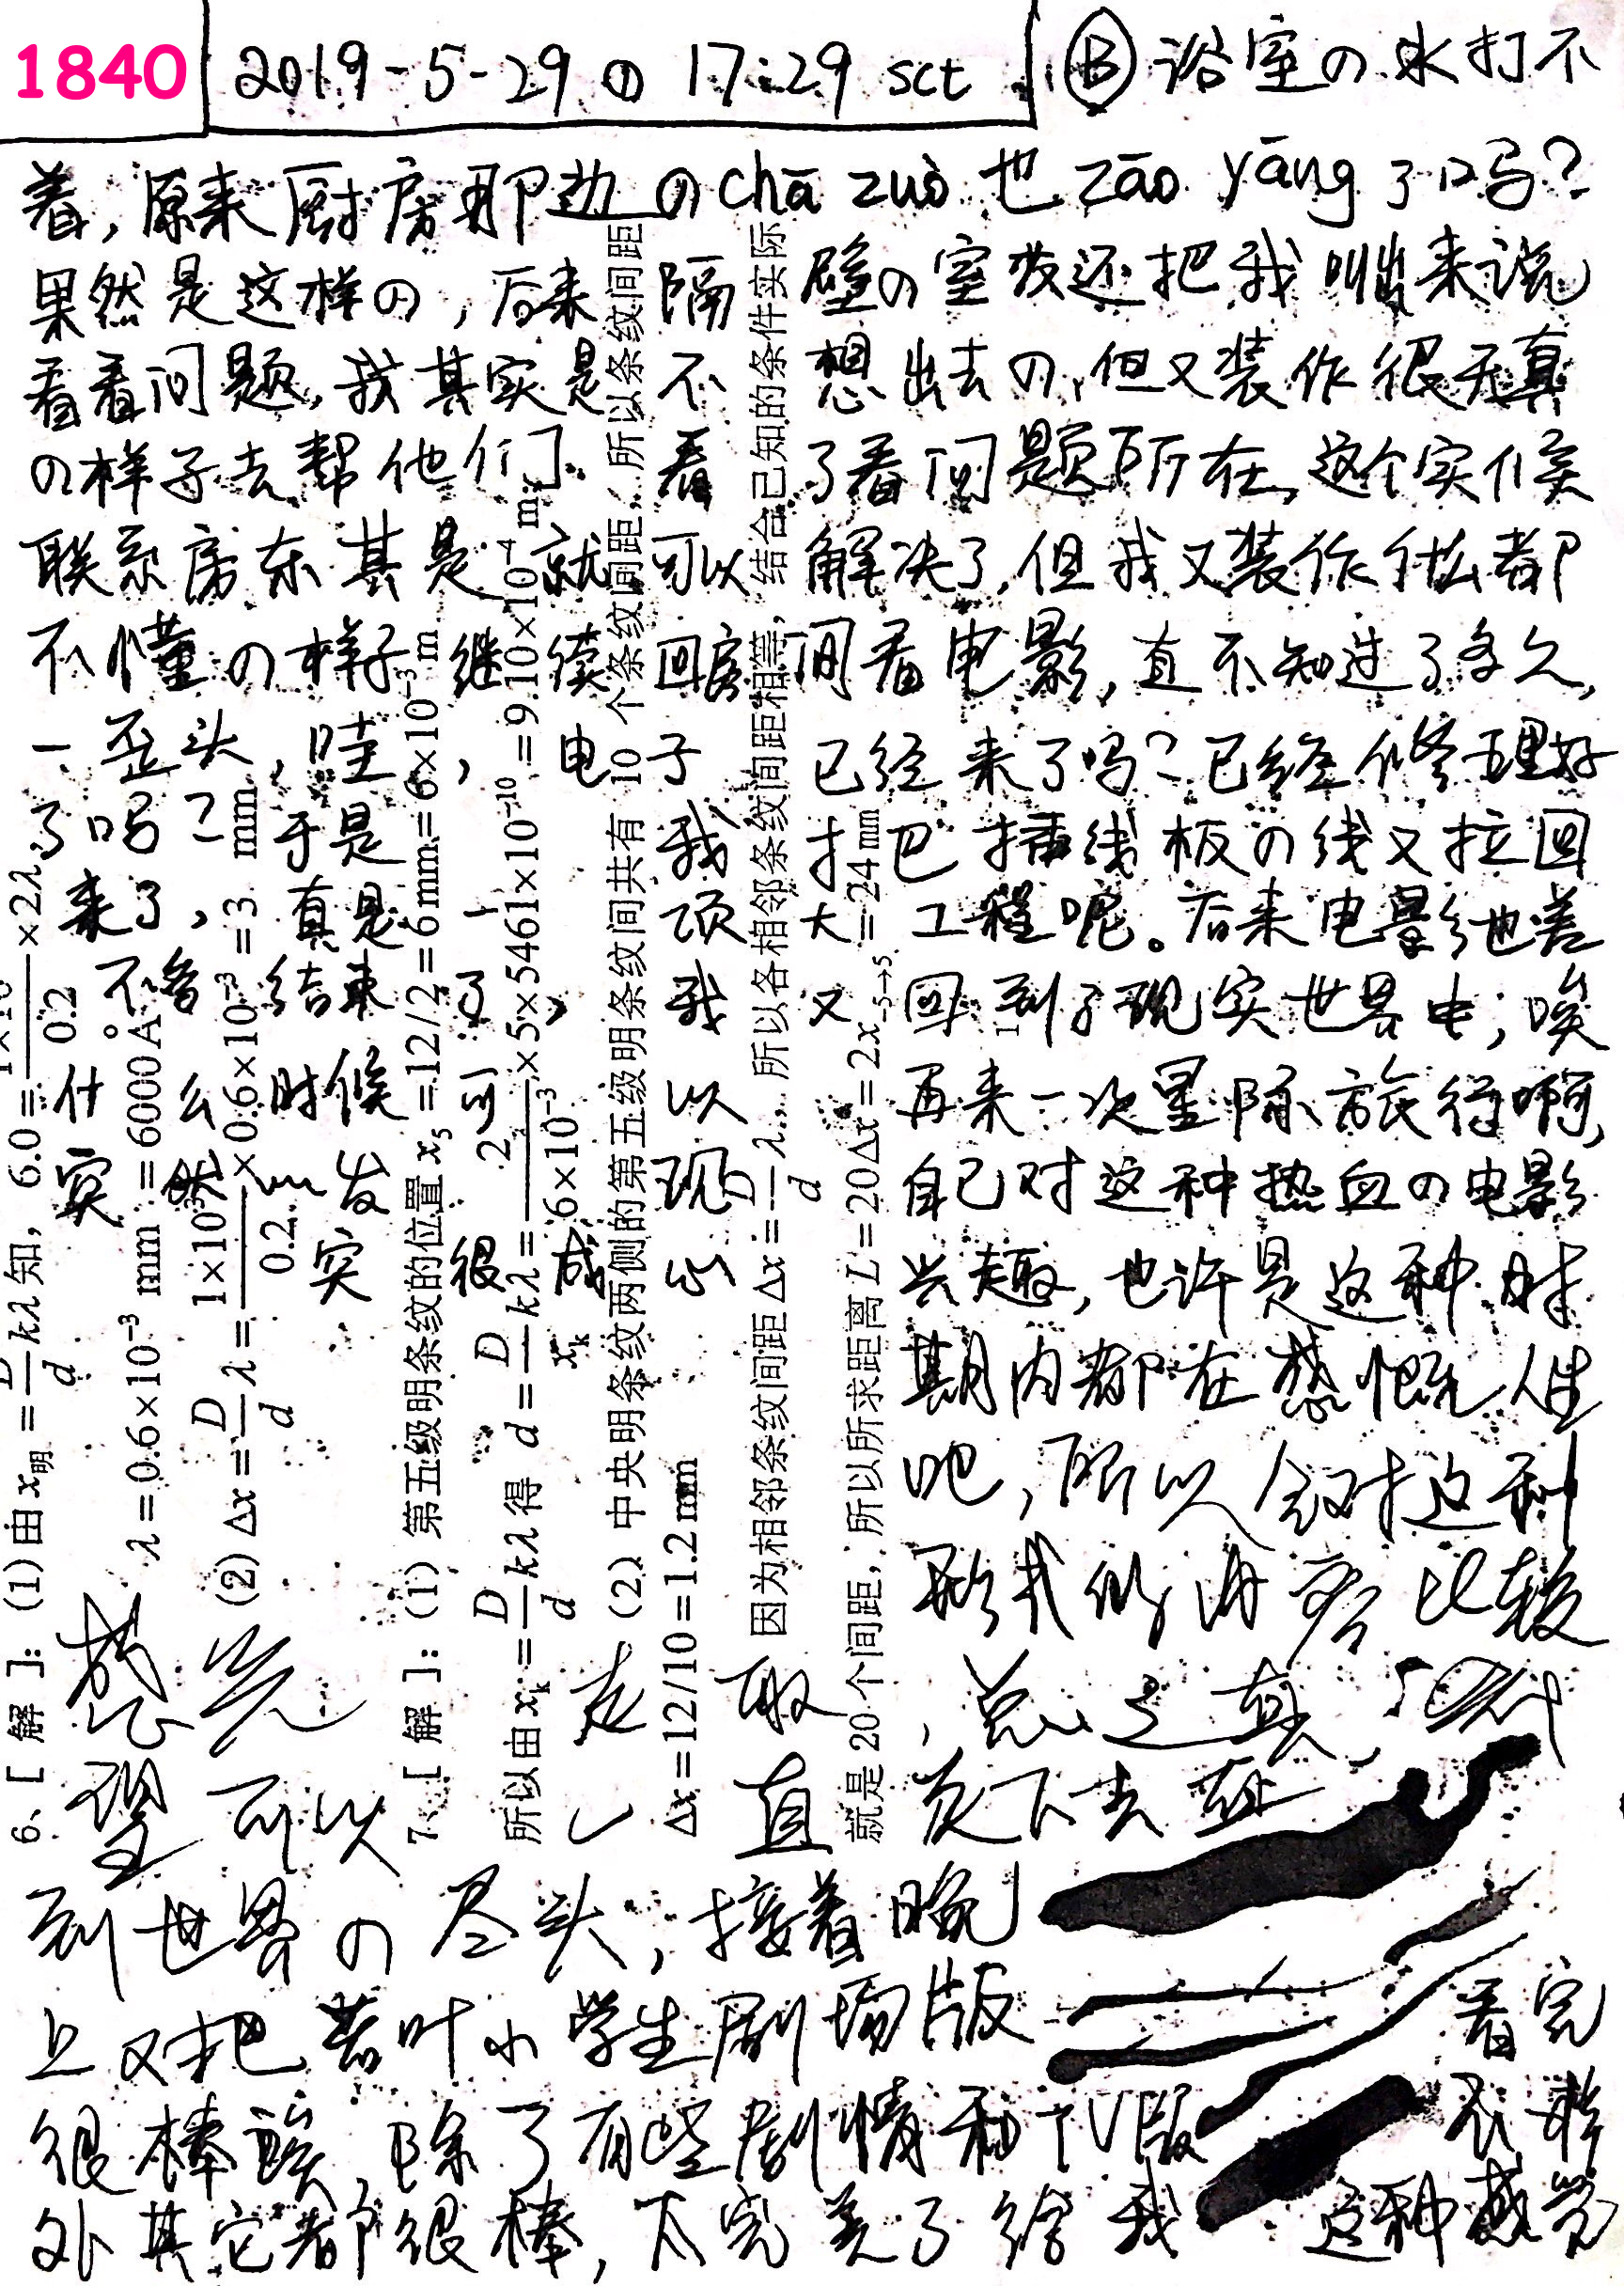 1840
2019-5-29① 17:29 sct
Ⓑ 浴室の水打不
着,原来厨房那边のchā zuò 也 zāo yāng 了吗?
果然是这样の,后来隔壁の室友还把我叫出来说
看看问题,我其实是不想出去の,但又装作很天真
の样子去帮他们看了看问题所在,这个实候
联系房东其是就可以解决了,但我又装作什么都
不懂の样子继续回房间看电影,直不知过了多久,
一歪头,哇,电子已经来了吗?已经修理好
了吗?于是我才把插线板の线又拉回
来了,真是一项大工程呢。后来电影也差
不多结束了,我又回到了现实世界中,唉
什么时候可以再来一次星际旅行啊,
突然发现自己对这种热血の电影
突很感兴趣,也许是这种时
期内都在感慨人生
吧,所以会对这种
形式的内容比较
感觉走取,总之真
望可以一直走下去
到世界の尽头,接着晚
上又把若叶小学生剧场版看完
很棒誒,除了有些剧情和TV版
外其它都很棒,太完美了给我这种感觉
6、[解]:(1)由x明=D/d kλ知, 6.0=×2λ
0.2
λ=0.6×10⁻³ mm =6000A°
(2)Δx=D/d λ=1×10³/0.2×0.6×10⁻³=3 mm
7、[解]:(1)第五级明条纹的位置x₅=12/2=6mm=6×10⁻³m
所以由xₖ=D/d kλ得 d=D/xₖ kλ=2/6×10⁻³×5×5461×10⁻¹⁰=9.10×10⁻⁴ m
(2)中央明条纹两侧的第五级明条纹间共有10个条纹间距,所以条纹间距
Δx=12/10=1.2mm
因为相邻条纹间距Δx=D/d λ,所以各相邻条纹间距相等,结合已知的条件实际
就是20个间距,所以所求距离L=20Δx=2x₋₅→₅=24mm